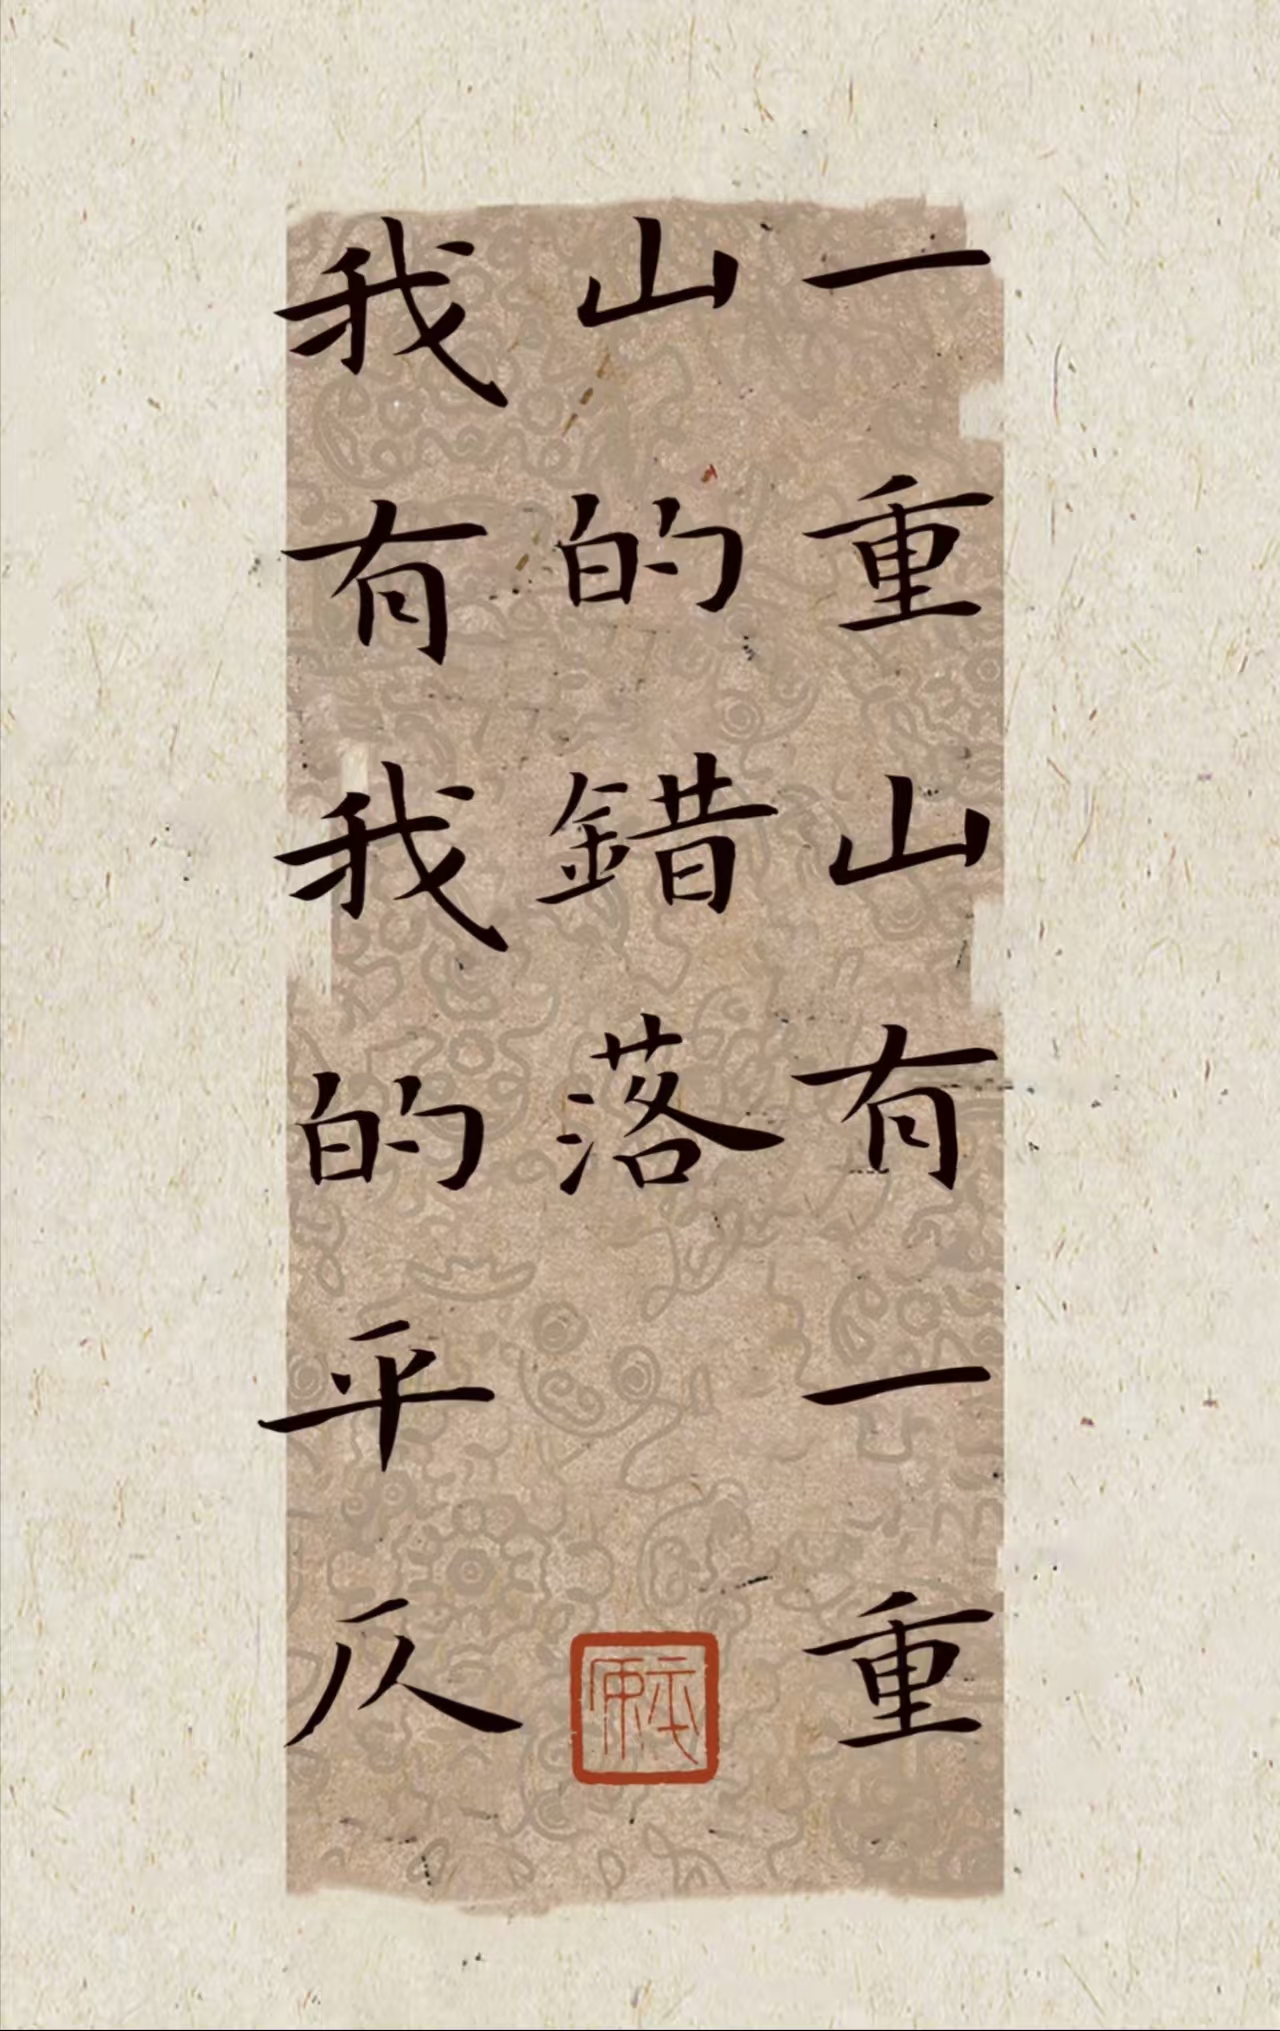 一重山有一重
山的錯落
我有我的平仄